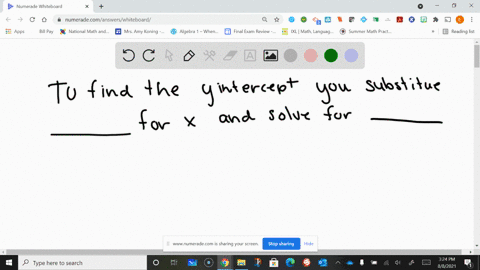 Numerade Whiteboard
numerade.com/answers/whiteboard/
Apps
Bill Pay
National Math and...
Mrs. Amy Koning -...
Algebra 1 – When...
Final Exam Review -...
IXL | Math, Languag...
Summer Math Pract...
Reading list
To find the y intercept you substitue
_______ for x and solve for _______
www.numerade.com is sharing your screen.
Stop sharing
Hide
Type here to search
3:24 PM
6/8/2021